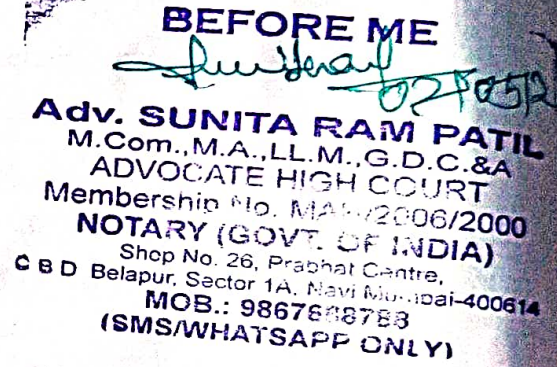 BEFORE ME
02/05/2
Adv. SUNITA RAM PATIL
M.Com.,M.A.,LL.M.,G.D.C.&A
ADVOCATE HIGH COURT
Membership No. /2006/2000
NOTARY (GOVT. OF INDIA)
Shop No. 26, Prabhat Centre,
C B D Belapur, Sector 1A, Navi Mumbai-400614
MOB.:
(SMS/WHATSAPP ONLY)